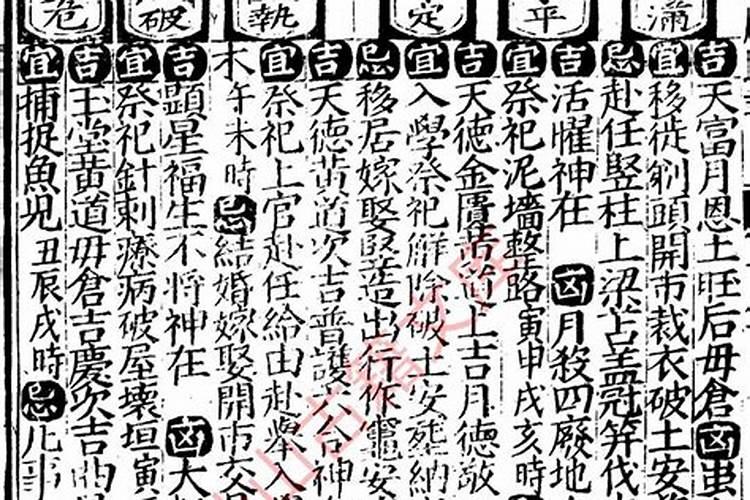 滿
平
定
執
破
危
吉 天富月恩土旺后毋倉 凶
宜 移徙剃頭開市裁衣破土安
忌 赴任竪柱上梁苫盖冠笄伐
吉 活曜神在 凶 月殺四廢地
宜 祭祀泥墻整路寅申戌亥時
吉 天德金匱 上吉月德敬
宜 入學祭祀解除破土安葬納
忌 移居嫁娶竪造出行作竈安
吉 天德黄道次吉普護六合神
宜 祭祀上官赴任給由赴舉入
木午未時 忌 結婚嫁娶開市交
吉 顯星福生不將神在 凶 大
宜 祭祀針刺療病破屋壊垣寅
吉 玉堂黄道毋倉吉慶次吉
宜 捕捉魚 丑辰戌時 忌 凡事